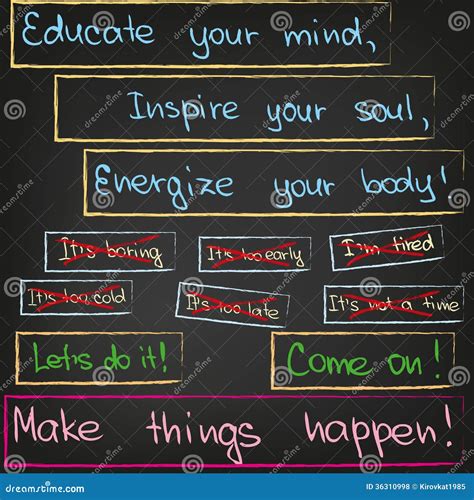 Educate your mind,
Inspire your soul,
Energize your body!
It's boring
It's too early
I'm tired
It's too cold
It's too late
It's not a time
Let's do it!
Come on!
Make things happen!
dreamstime.com
ID 36310998 © Kirovkat1985